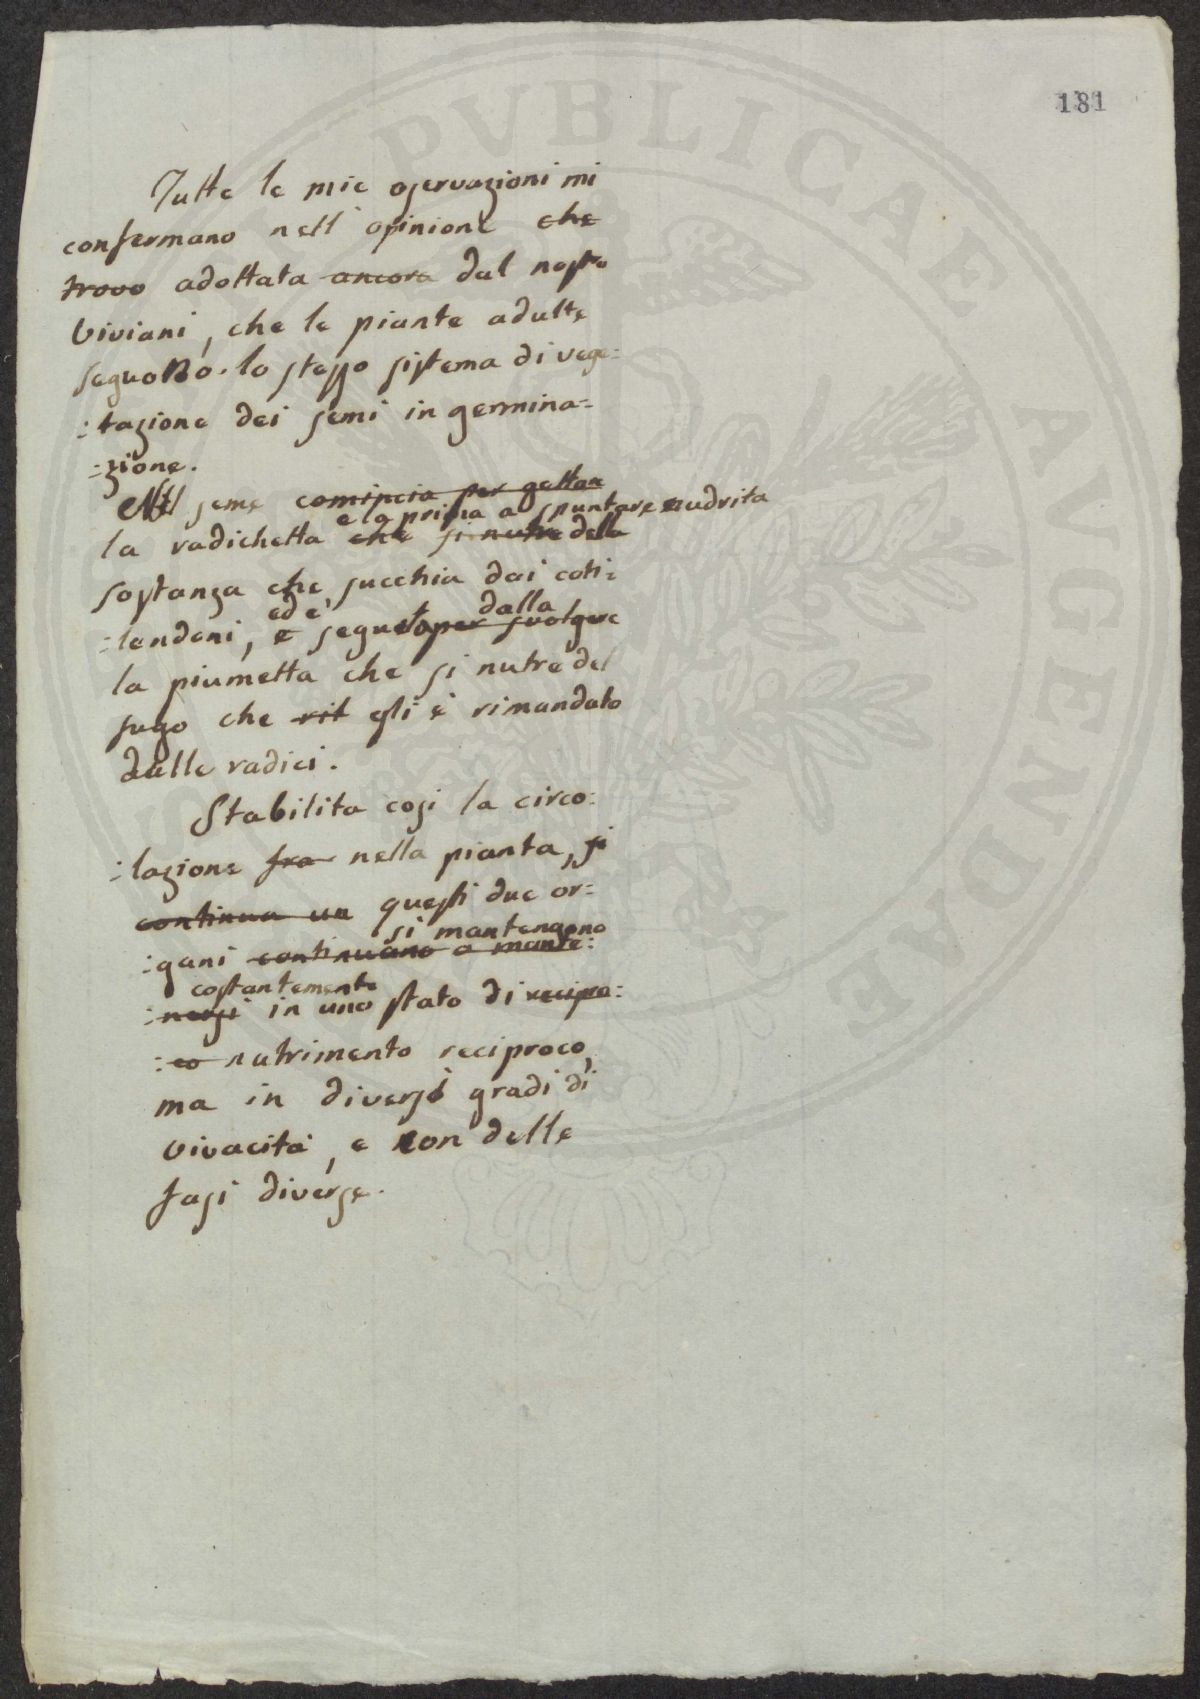 181
Tutte le mie oservazioni mi
confermano nell' opinione che
trovo adottata ancora dal nostro
Viviani, che le piante adulte
seguono lo stesso sistema di vege:
:tazione dei semi in germina:
:zione.
Nel seme comincia per gettare
e la prima a spuntare nudrita
la radichetta che si nutre della
sostanza che succhia dai coti:
ed è dalla
:lendoni, e seguita per svolgere
la piumetta che si nutre del
sugo che rit gli è rimandato
dalle radici.
Stabilita cosi la circo:
:lazione fra nella pianta, si
continua un questi due or:
si mantengono
:gani continuano a mante:
costantemente
:nersi in uno stato di recipro:
:co nutrimento reciproco,
ma in diversi gradi di
vivacità, e con delle
fasi diverse.
PVBLICAE AVGENDAE